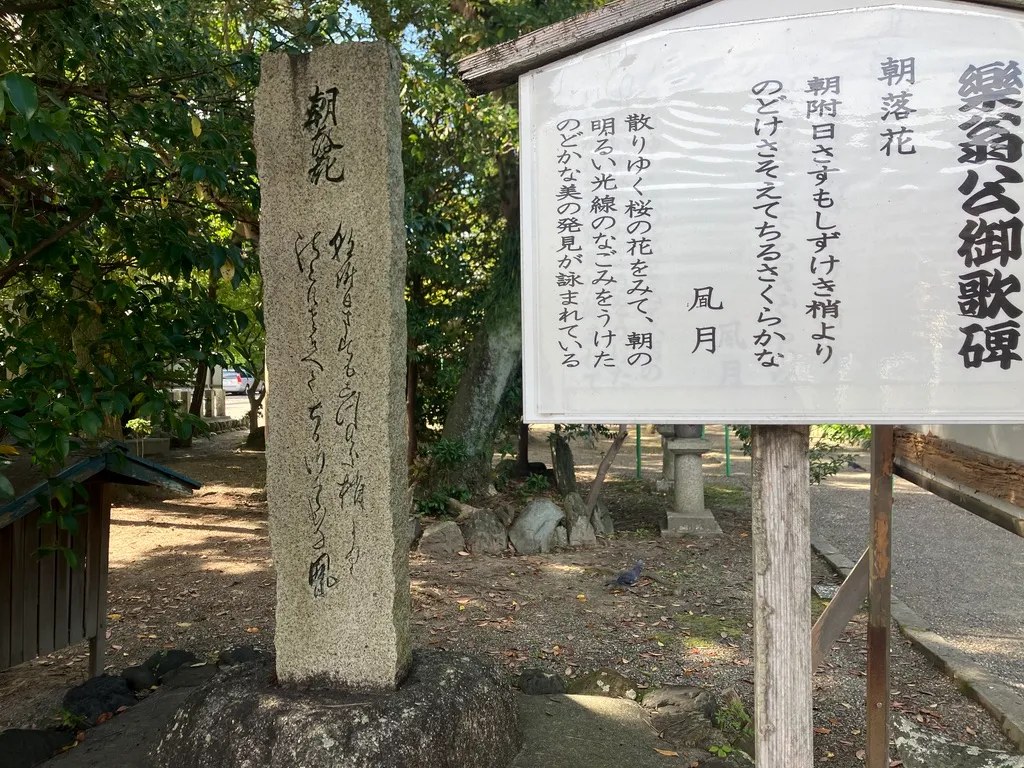 樂翁公御歌碑
朝落花
朝附日さすもしずけき梢より
のどけさそえてちるさくらかな
凮月
散りゆく桜の花をみて、朝の
明るい光線のなごみをうけた
のどかな美の発見が詠まれている
朝落花